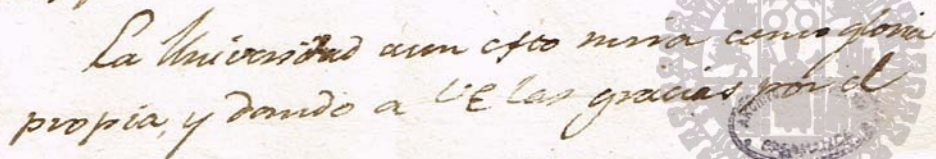 La Universidad aun esto mira como gloria
propia, y dando a VE las gracias por el